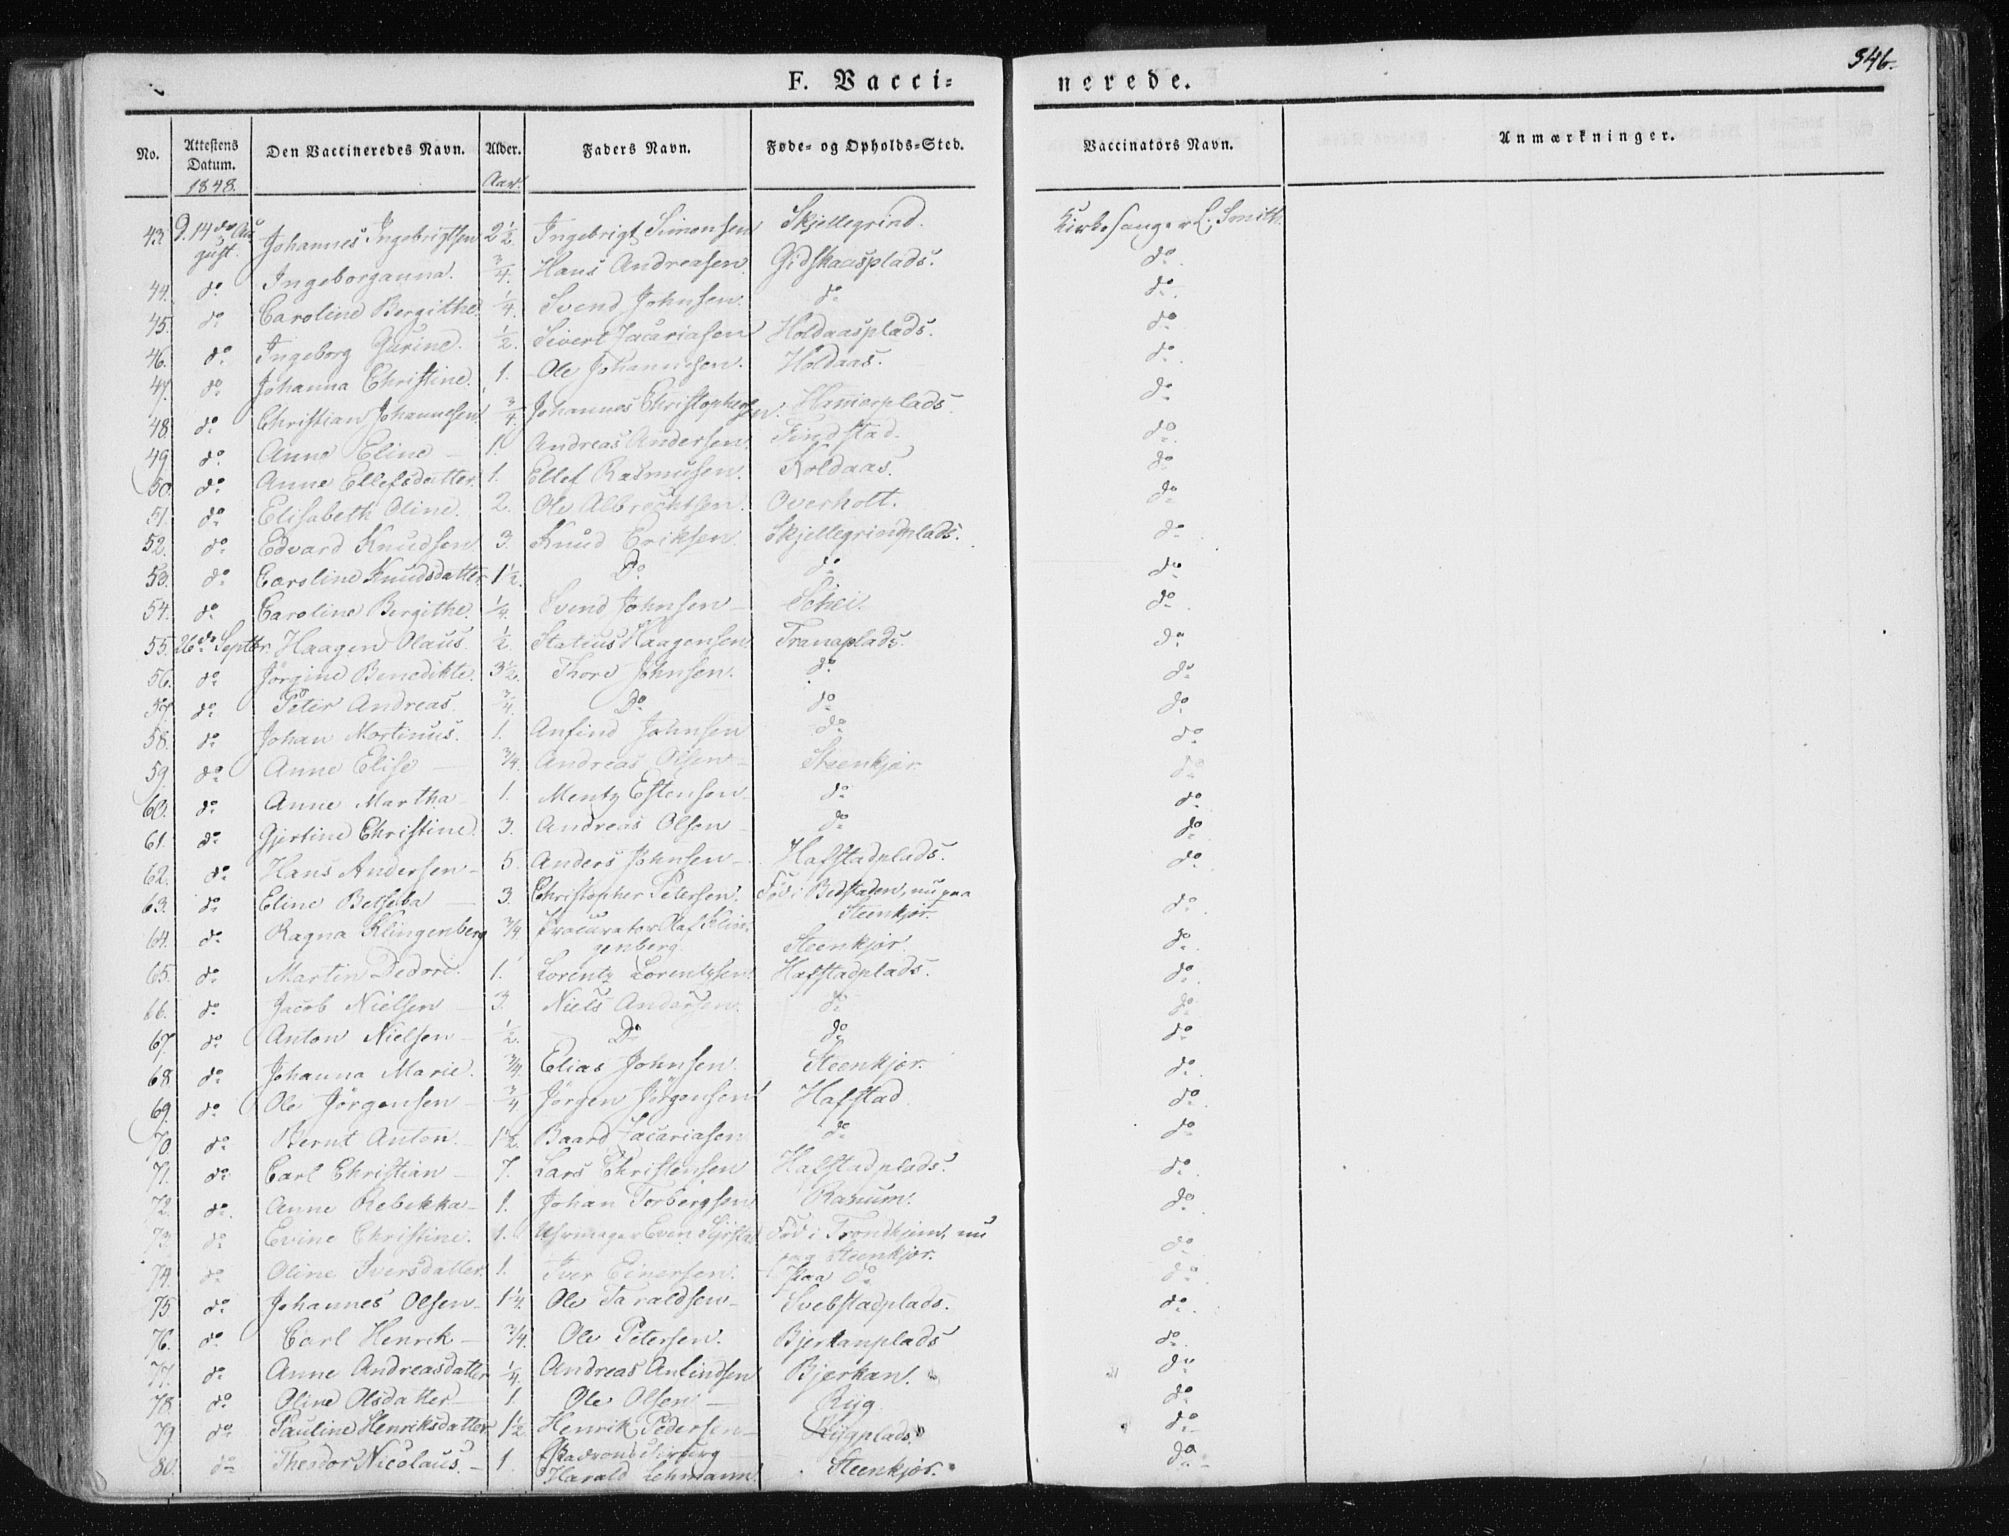 346.
F. Vacci- nerede.
No. Attestens Datum. Den Vaccineredes Navn. Alder. Faders Navn. Føde- og Opholds-Sted. Vaccinators Navn. Anmærkninger.
1848. Aar.
43. D. 14de August. Johannes Ingebrigtsen 2 1/2. Ingebrigt Simonsen Skjellegrind. Kirkesanger L. Smith.
44. do Ingeborganna. 3/4. Hans Andreasen Gidskaasplads. do
45. do Caroline Bergithe. 1/4. Svend Johnsen. do do
46. do Ingeborg Gurine. 1/2. Sivert Zacariasen Holdaasplads. do
47. do Johanna Christine. 1. Ole Johannesen. Holdaas. do
48. do Christian Johannesen 3/4. Johannes Christophersen. Hammerplads. do
49. do Anne Eline – 1. Andreas Andersen. Findstad. do
50. do Anne Ellefsdatter. 1. Ellef Rasmusen. Koldaas. do
51. do Elisabeth Oline. 2. Ole Albrechtsen. Overholt. do
52. do Edvard Knudsen 3. Knud Eriksen Skjellegrindplads. do
53. do Caroline Knudsdatter 1 1/2. Do do do
54. do Caroline Bergithe. 1/4. Svend Johnsen – Schei. do
55. 26de Septbr. Haagen Olaus. 1/2. Statius Haagensen Tranaplads. do
56. do Jørgine Benedikte. 3 1/2. Thore Johnsen. do do
57. do Peter Andreas. 3/4. Do do do
58. do Johan Martinus. 1. Anfind Johnsen do do
59. do Anne Elise – 3/4. Andreas Olsen – Steenkjær do
60. do Anne Martha – 1. Mentz Estensen do do
61. do Gjertine Christine. 3. Andreas Olsen – do do
62. do Hans Andersen – 5. Anders Johnsen – Hafstadplads. do
63. do Eline Betseba – 3. Christopher Petersen. Fød i Bedstaden, nu paa Steenkjær. do
64. do Ragna Klingenberg 3/4 Procurator Olaf Klingenberg. Steenkjær. do
65. do Martin Dedori. 1. Lorentz Lorentzsen Hafstadplads. do
66. do Jacob Nielsen – 3. Niels Andersen. do do
67. do Anton Nielsen – 1/2. Do do do
68 do Johanna Marie. 3/4. Elias Johnsen. Steenkjær. do
69. do Ole Jørgensen – 3/4 Jørgen Jørgensen Hafstad do
70. do Bernt Anton. 1 1/2. Baard Zacariasen do do
71. do Carl Christian – 7. Lars Christensen Hafstadplads. do
72. do Anne Rebekka – 1. Johan Torbergsen Ranum. do
73. do Evine Christine. 1. Uhrmager Even Fød i Trondhjem, nu paa Steenkjær. do
74 do Oline Iversdatter. 1. Iver Einersen. paa do do
75 do Johannes Olsen – 1 1/4. Ole Taraldsen – Svebstadplads. do
76. do Carl Henrik – 3/4. Ole Petersen. Bjerkanplads do
77. do Anne Andreasdatter 1/4. Andreas Anfindsen Bjerkan. do
78 do Oline Olsdatter – 1. Ole Olsen – Ryg. do
79 do Pauline Henriksdatter 1 1/2. Henrik Pedersen – Rygplads. do
80. do Theodor Nicolaus. – 1. Harald Lehmann. Steenkjær. do